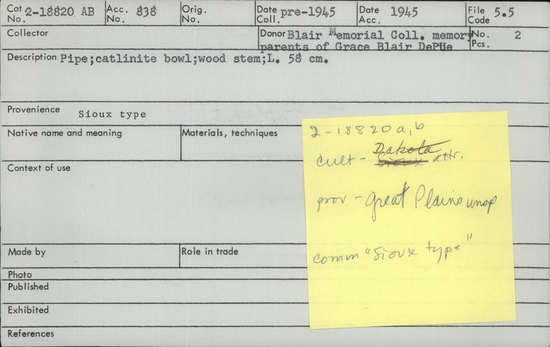 Cat No. 2-18820 AB Acc. No. 838 Orig. No. Date Coll. pre-1945 Date Acc. 1945 File Code 5.5
Collector Donor Blair Memorial Coll. memory parents of Grace Blair DePue No. Pcs. 2
Description Pipe;catlinite bowl;wood stem;L. 58 cm.
Provenience Sioux type
Native name and meaning Materials, techniques
Context of use
Made by Role in trade
Photo
Published
Exhibited
References
2-18820a,b
cult- Dakota
Sioux attr.
prov- Great Plains unsp
comm "Sioux type"